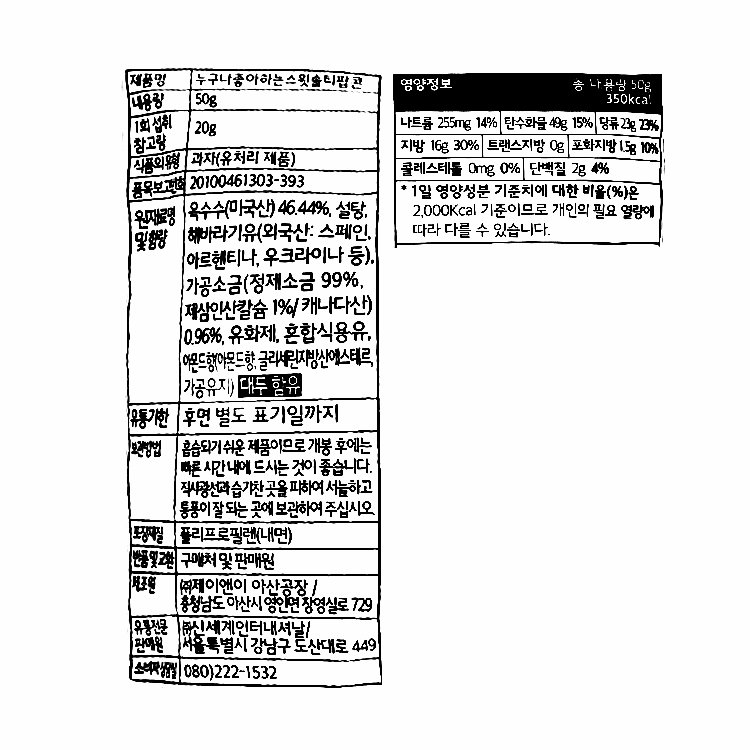 제품명 누구나좋아하는스윗솔티팝콘
내용량 50g
1회 섭취 20g
참고량
식품의유형 과자(유처리 제품)
품목보고번호 20100461303-393
원재료명 옥수수(미국산) 46.44%, 설탕,
및 함량 해바라기유(외국산: 스페인,
아르헨티나, 우크라이나 등),
가공소금(정제소금 99%,
제삼인산칼슘 1%/ 캐나다산)
0.96%, 유화제, 혼합식용유,
아몬드향(아몬드향, 글리세린지방산에스테르,
가공유지) 대두 함유
유통기한 후면 별도 표기일까지
보관방법 흡습되기 쉬운 제품이므로 개봉 후에는
빠른 시간 내에 드시는 것이 좋습니다.
직사광선과 습기찬 곳을 피하여 서늘하고
통풍이 잘 되는 곳에 보관하여 주십시오
포장재질 폴리프로필렌(내면)
반품 및 교환 구매처 및 판매원
제조원 ㈜제이앤이 아산공장 /
충청남도 아산시 영인면 장영실로 729
유통전문 ㈜신세계인터내셔날/
판매원 서울특별시 강남구 도산대로 449
소비자상담실 080)222-1532
영양정보 총 내용량 50g
350kcal
나트륨 255mg 14% 탄수화물 49g 15% 당류 23g 23%
지방 16g 30% 트랜스지방 0g 포화지방 1.5g 10%
콜레스테롤 0mg 0% 단백질 2g 4%
* 1일 영양성분 기준치에 대한 비율(%)은
2,000Kcal 기준이므로 개인의 필요 열량에
따라 다를 수 있습니다.